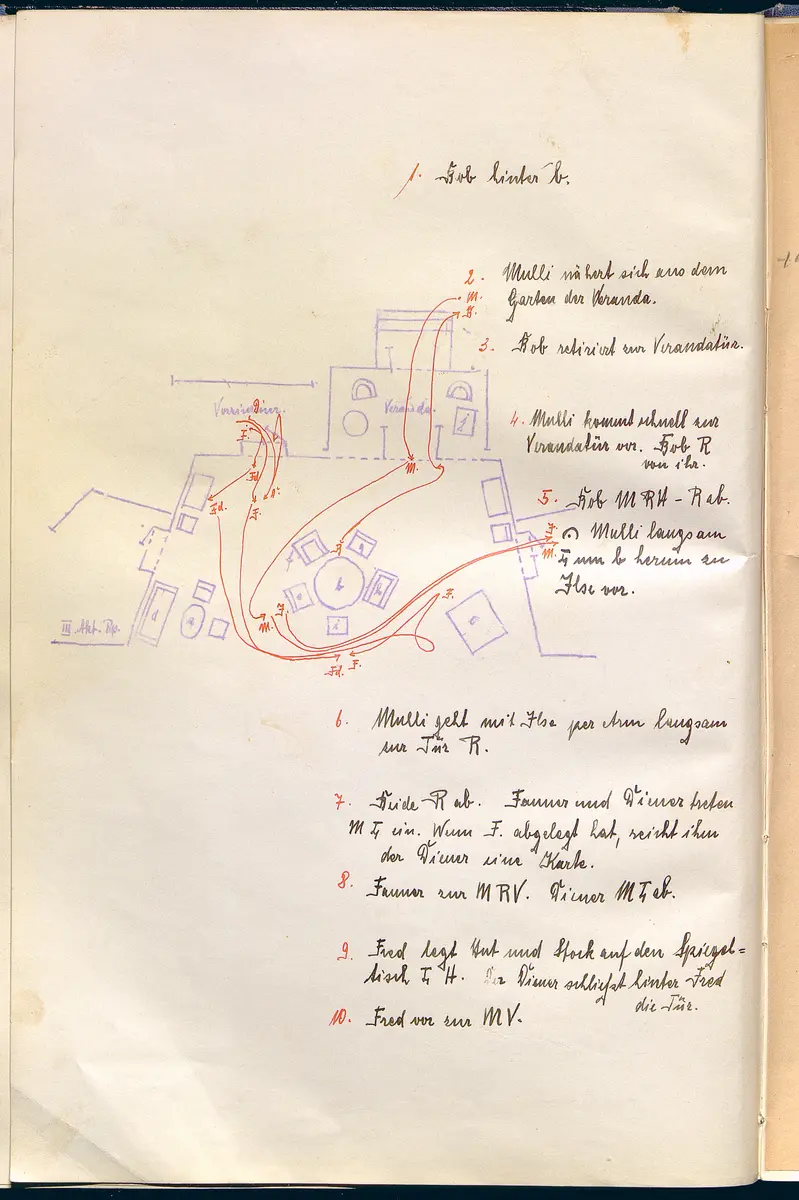 1. Bob hinter b.
2. Mulli nähert sich aus dem
Garten der Veranda.
M.
B.
3. Bob retiriert zur Verandatür.
Veranda.
Di
F.
4. Mulli kommt schnell zur
Verandatür vor. Bob R
von ihr.
M.
Fd.
5. Bob MRH – R ab.
Mulli langsam
L um b herum zu
Ilse vor.
J.
M.
Fd.
F.
F.
b
M.
J.
III. Akt.
Fd. F.
6. Mulli geht mit Ilse per Arm langsam
zur Tür R.
7. Beide R ab. Fanner und Diener treten
M L ein. Wenn F. abgelegt hat, reicht ihm
der Diener eine Karte.
8. Fanner zur MRV. Diener M L ab.
9. Fred legt Hut und Stock auf den Spiegel=
tisch L H. Der Diener schließt hinter Fred
die Tür.
10. Fred vor zur MV.